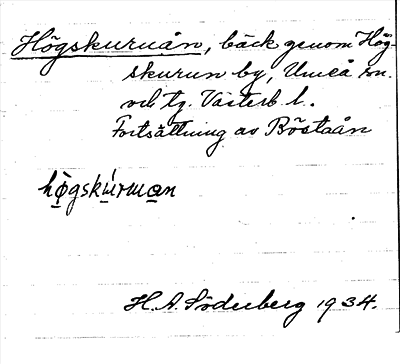 Högskurnån, bäck genom Hög-
skurun by, Umeå sn.
och tg. Västerb. l.
Fortsättning av Böstaån
högskurman
H. A. Söderberg 1934.